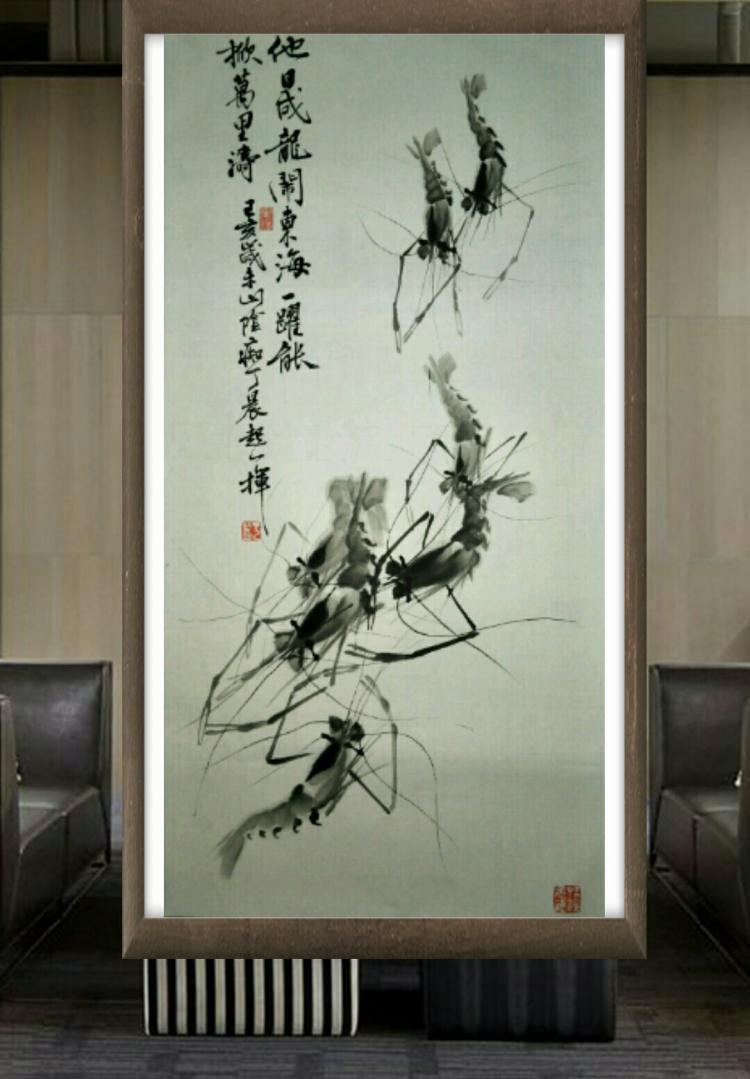 他日成龍鬧東海一躍能
掀萬里濤 己亥歲末山陰痴丁晨起一揮